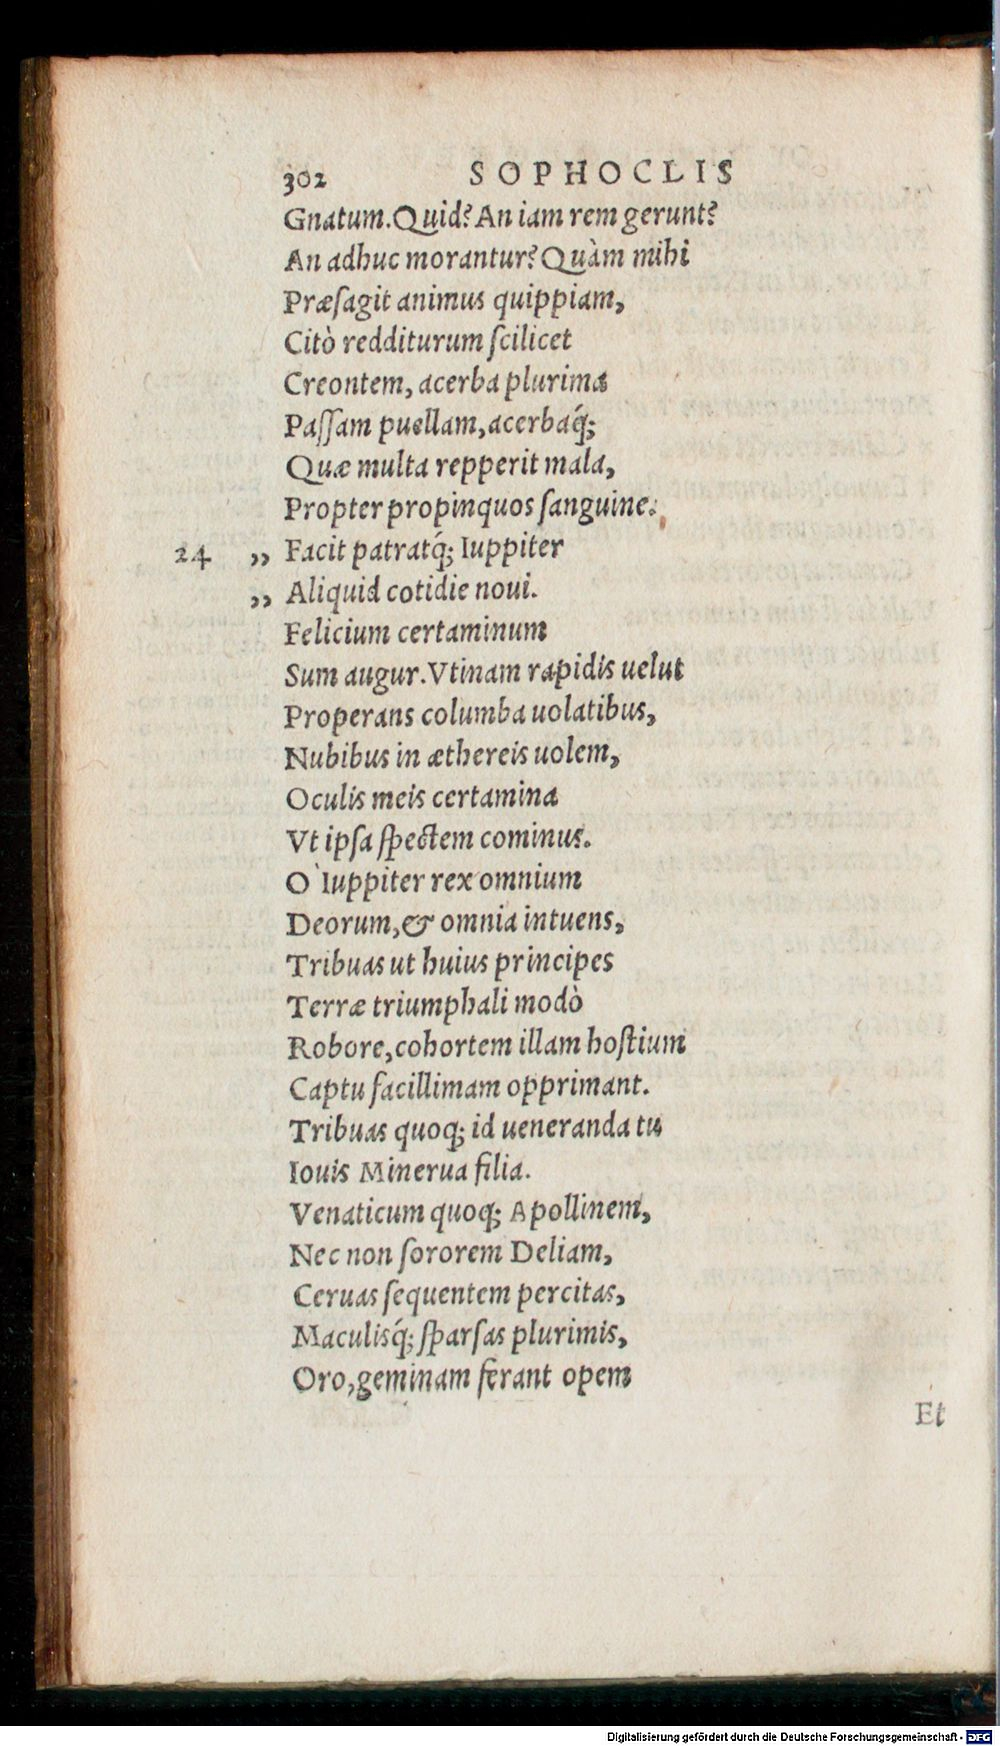 302 SOPHOCLIS
Gnatum. Quid? An iam rem gerunt?
An adhuc morantur? Quàm mihi
Præſagit animus quippiam,
Citò redditurum ſcilicet
Creontem, acerba plurima
Paſſam puellam, acerbaq́;
Quæ multa repperit mala,
Propter propinquos ſanguine.
24 ,, Facit patratq́; Iuppiter
,, Aliquid cotidie noui.
Felicium certaminum
Sum augur. Vtinam rapidis uelut
Properans columba uolatibus,
Nubibus in æthereis uolem,
Oculis meis certamina
Vt ipſa ſpectem cominus.
O` Iuppiter rex omnium
Deorum, & omnia intuens,
Tribuas ut huius principes
Terræ triumphali modò
Robore, cohortem illam hoſtium
Captu facillimam opprimant.
Tribuas quoq; id ueneranda tu
Iouis Minerua filia.
Venaticum quoq; Apollinem,
Nec non ſororem Deliam,
Ceruas ſequentem percitas,
Maculisq́; ſparſas plurimis,
Oro, geminam ferant opem
Et
Digitalisierung gefördert durch die Deutsche Forschungsgemeinschaft - DFG